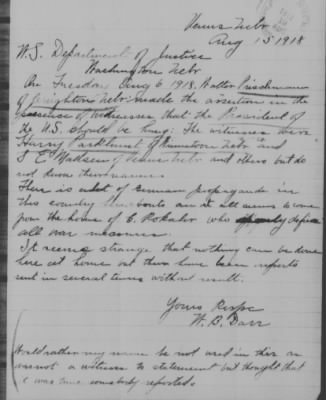 Venus Nebr
Aug 15 1918
U.S. Department of Justice
Washington Nebr
On Tuesday Aug 6 1918, Walter
of Creighton Nebr made the assertion in the
presence of witnesses, that the President of
the U.S. should be hung. The witnesses were
Harry of Nebr and
S E Madsen of Venus Nebr and others but do
not know their names.
There is a lot of German propaganda in
this country and it all seems to come
from the home of who openly
all war measures.
It seems strange that nothing can be done
here at home out there have been reports
sent in several times without result.
Yours Respc
W. B. Darr
Would rather my name be not used in this as
was not a witness to statement but thought that
it was time somebody reported.